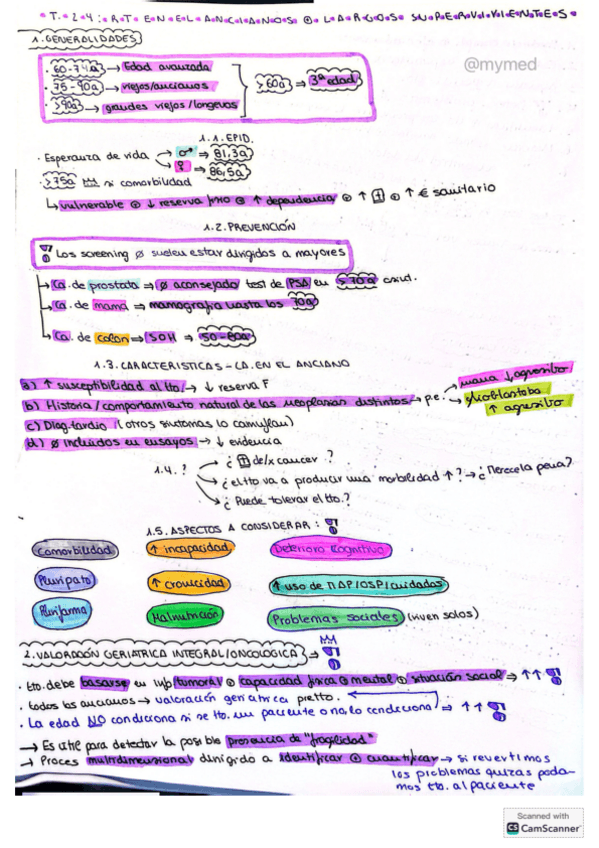 T.24: RT EN EL ANCIANOS ⊕ LARGOS SUPERVIVIENTES
1. GENERALIDADES
@mymed
· 60-74a → Edad avanzada
· 75-90a → viejos/ancianos
· >90a → grandes viejos/longevos
>60a ⇒ 3ª edad
1.1. EPID.
· Esperanza de vida → ♂ ⇒ 81,3a
→ ♀ ⇒ 86,5a
· >75a si comorbilidad
↳ vulnerable ⊕ ↓ reserva ⊕ ↑ dependencia ⊕ ↑ ⊕ ↑ € sanitario
1.2. PREVENCIÓN
Los screening ∅ suelen estar dirigidos a mayores
→ Ca. de prostata ⇒ ∅ aconsejado test de PSA en >70a
→ Ca. de mama ⇒ mamografia hasta los 70a
↳ Ca. de colon ⇒ SOH ⇒ 50-80a
1.3. CARACTERISTICAS - CA. EN EL ANCIANO
a) ↑ susceptibilidad al tto. → ↓ reserva F
b) Historia/comportamiento natural de las neoplasias distintos → p.e. → mama ↓ agresivo
→ glioblastoba ↑ agresivo
c) Diag. tardio (otros sintomas lo camuflan)
d) ∅ incluidos en ensayos → ↓ evidencia
1.4. ?
→ ¿ de/x cancer ?
→ ¿el tto va a producir una morbilidad ↑ ? → ¿Merece la pena?
→ ¿Puede tolerar el tto.?
1.5. ASPECTOS A CONSIDERAR:
Comorbilidad
↑ incapacidad
Deterioro Cognitivo
Pluripato
↑ Cronicidad
↑ uso de
Plurifarma
Malnutrición
Problemas sociales (viven solos)
2. VALORACIÓN GERIATRICA INTEGRAL/ONCOLOGICA →
· tto. debe basarse en info tumoral ⊕ capacidad fisica ⊕ mental ⊕ situación social ⇒ ↑↑
· todos los ancianos → valoración geriatrica pretto.
· La edad NO condiciona si se tto. un paciente o no, lo condiciona ⇒ ↑↑
→ Es util para detectar la posible presencia de "fragilidad"
→ Proces multidimensional dirigido a identificar ⊕ cuantificar → si revertimos
los problemas quizas poda-
mos tto. al paciente
Scanned with
CS CamScanner